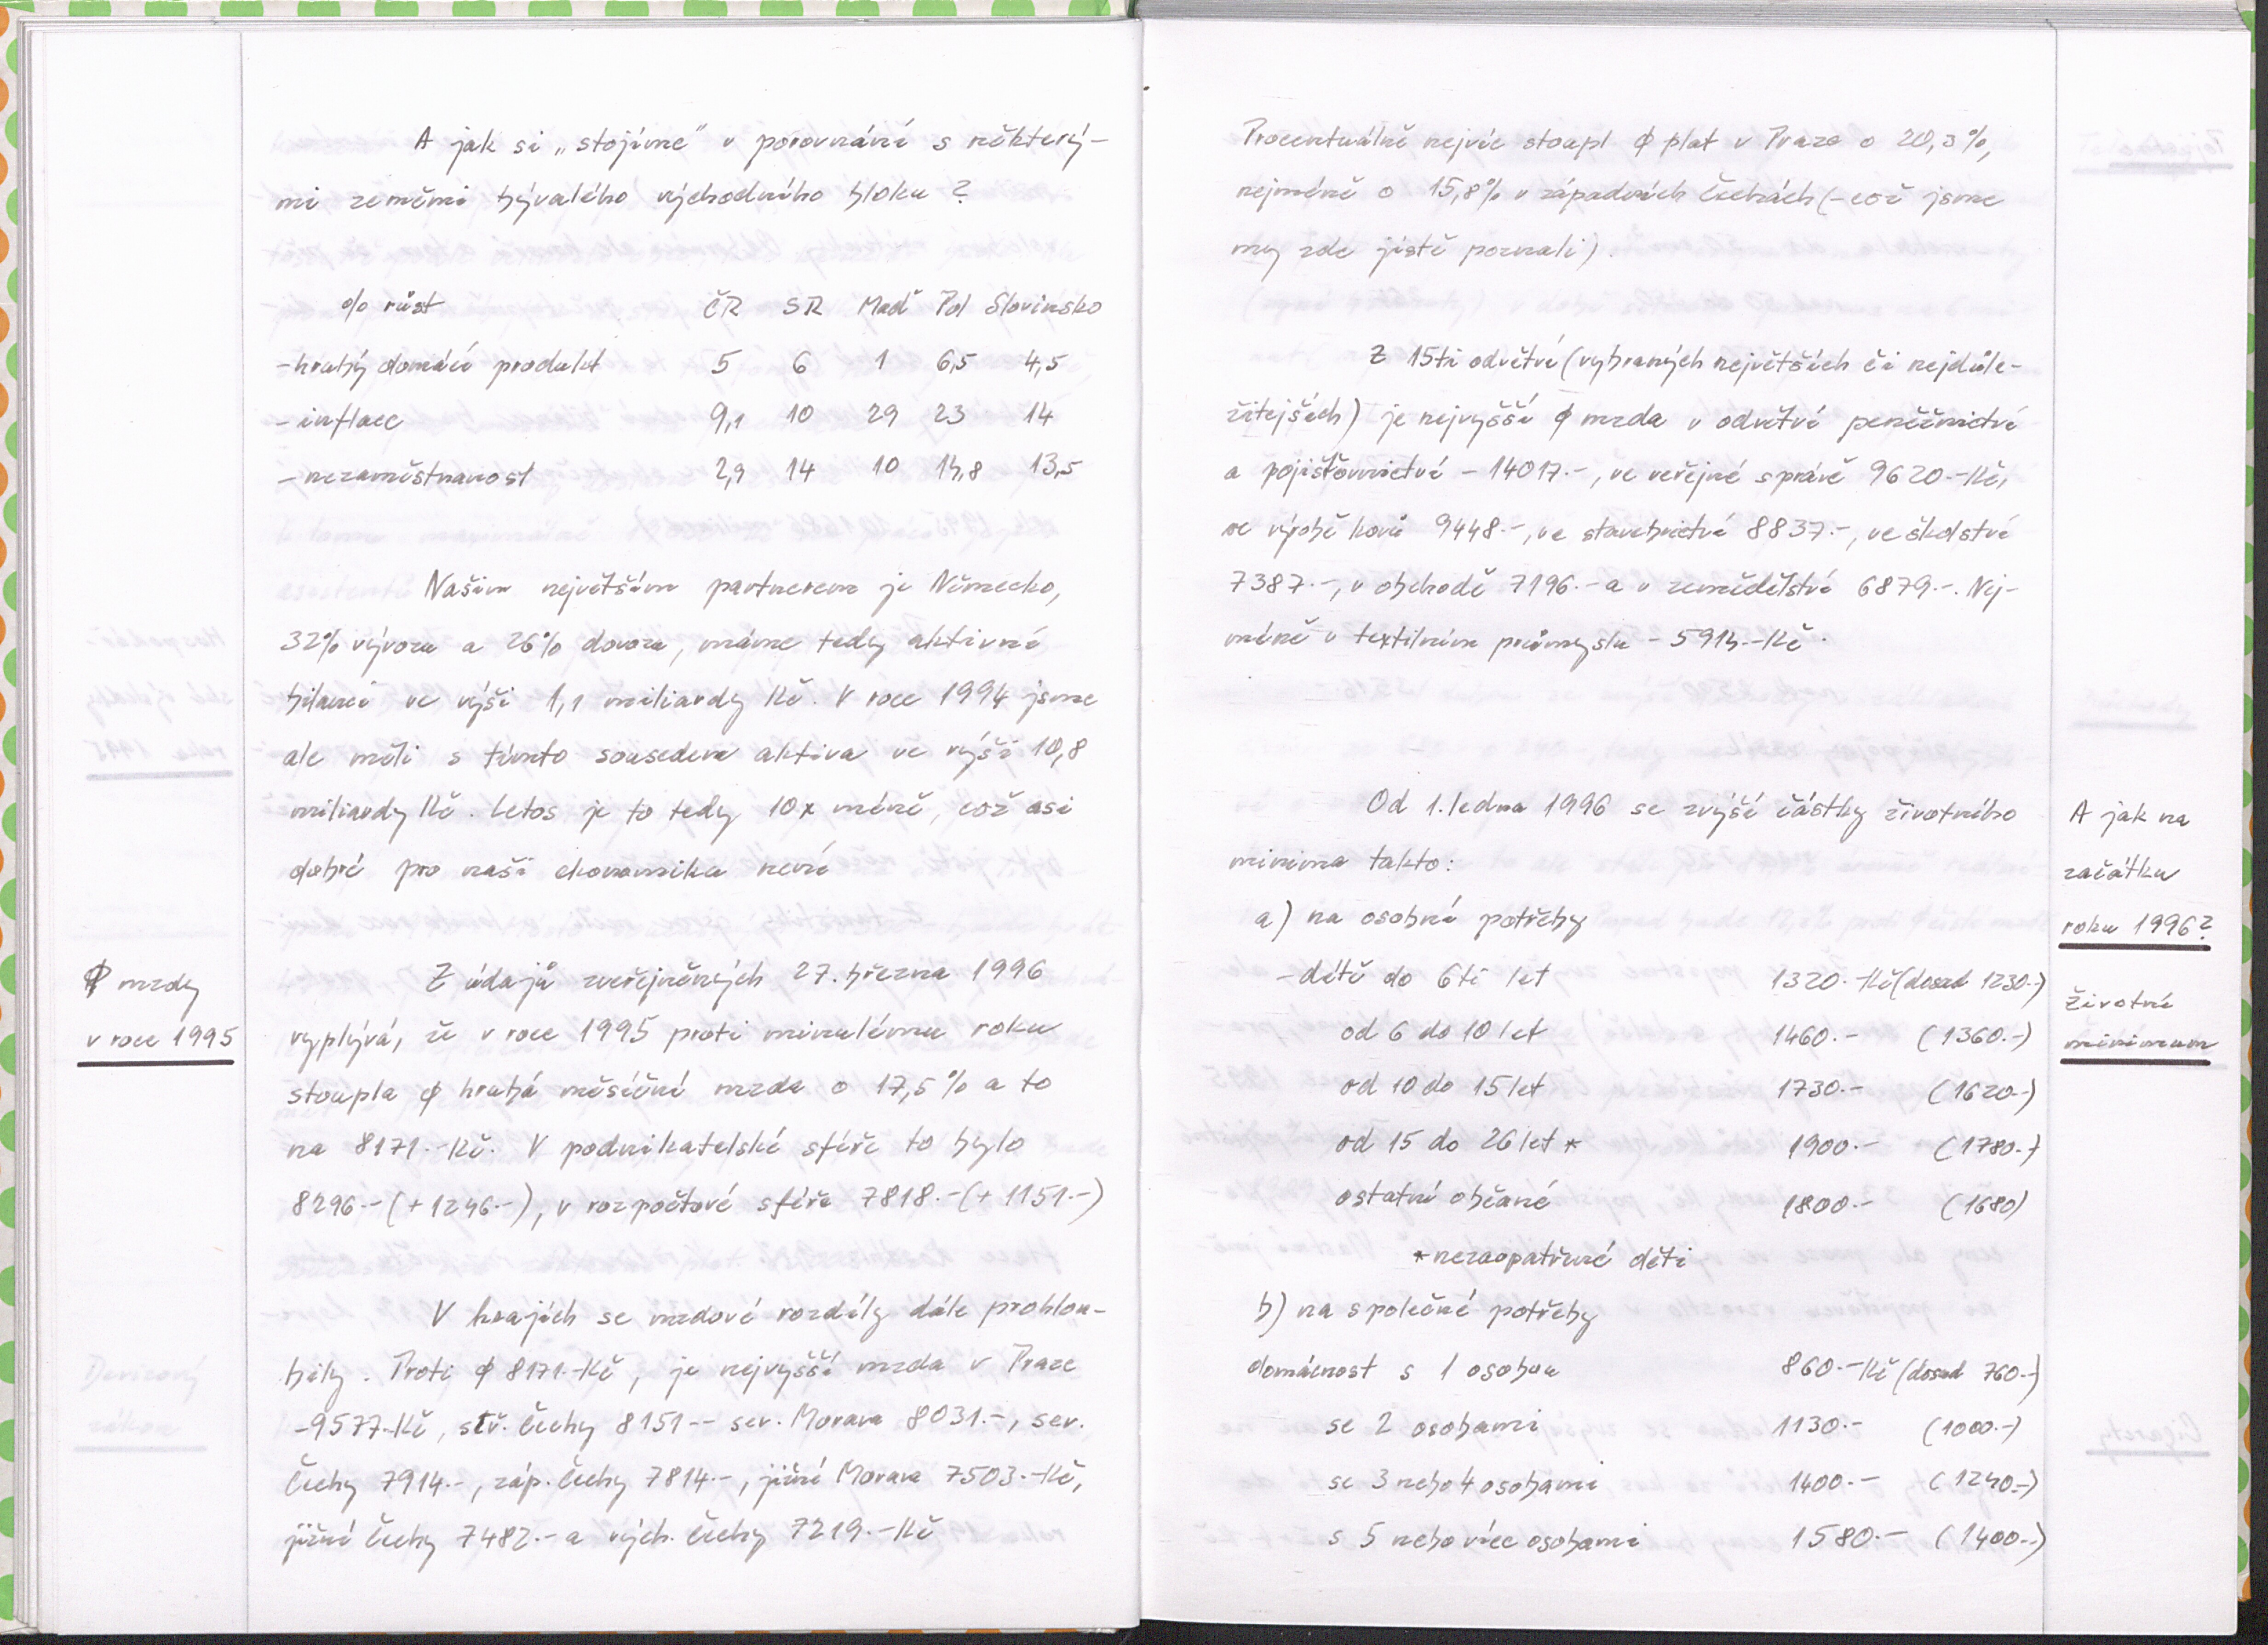 A jak si „stojíme" v porovnání s některý-
mi zeměmi bývalého východního bloku?
% růst ČR SR Maď Pol Slovinsko
- hrubý domácí produkt 5 6 1 6,5 4,5
- inflace 9,1 10 29 23 14
- nezaměstnanost 2,9 14 10 14,8 13,5
Našim největším partnerem je Německo,
32% vývozu a 26% dovozu, máme tedy aktivní
bilanci ve výši 1,1 miliardy Kč. V roce 1994 jsme
ale měli s tímto sousedem aktiva ve výši 10,8
miliardy Kč. Letos je to tedy 10x méně, což asi
dobré pro naši ekonomiku není
ϕ mzdy
v roce 1995
Z údajů zveřejněných 27. března 1996
vyplývá, že v roce 1995 proti minulému roku
stoupla ϕ hrubá měsíční mzda o 17,5% a to
na 8171.-Kč. V podnikatelské sféře to bylo
8296.- (+1246.-), v rozpočtové sféře 7818.- (+1151.-)
V krajích se mzdové rozdíly dále prohlou-
bily. Proti ϕ 8171.-Kč, je nejvyšší mzda v Praze
-9577.-Kč, stř. Čechy 8151.-- sev. Morava 8031.-, sev.
Čechy 7914.-, záp. Čechy 7814.-, jižní Morava 7503.-Kč,
jižní Čechy 7482.- a vých. Čechy 7219.-Kč
Procentuálně nejvíc stoupl ϕ plat v Praze o 20,3%,
nejméně o 15,8% v západních Čechách (- což jsme
my zde jistě poznali).
Z 15ti odvětví (vybraných největších či nejdůle-
žitejších) je nejvyšší ϕ mzda v odvětví peněžnictví
a pojišťovnictví - 14017.-, ve veřejné správě 9620.-Kč,
ve výrobě kovů 9448.-, ve stavebnictví 8837.-, ve školství
7387.-, v obchodě 7196.- a v zemědělství 6879.-. Nej-
méně v textilním průmyslu - 5914.-Kč.
A jak na
začátku
roku 1996?
Životní
minimum
Od 1. ledna 1996 se zvýší částky životního
minima takto:
a) na osobní potřeby
- dítě do 6ti let 1320.-Kč (dosud 1230.-)
od 6 do 10 let 1460.- (1360.-)
od 10 do 15 let 1730.- (1620.-)
od 15 do 26 let * 1900.- (1780.-)
ostatní občané 1800.- (1680)
* nezaopatřené děti
b) na společné potřeby
domácnost s 1 osobou 860.-Kč (dosud 760.-)
se 2 osobami 1130.- (1000.-)
se 3 nebo 4 osobami 1400.- (1240.-)
s 5 nebo více osobami 1580.- (1400.-)